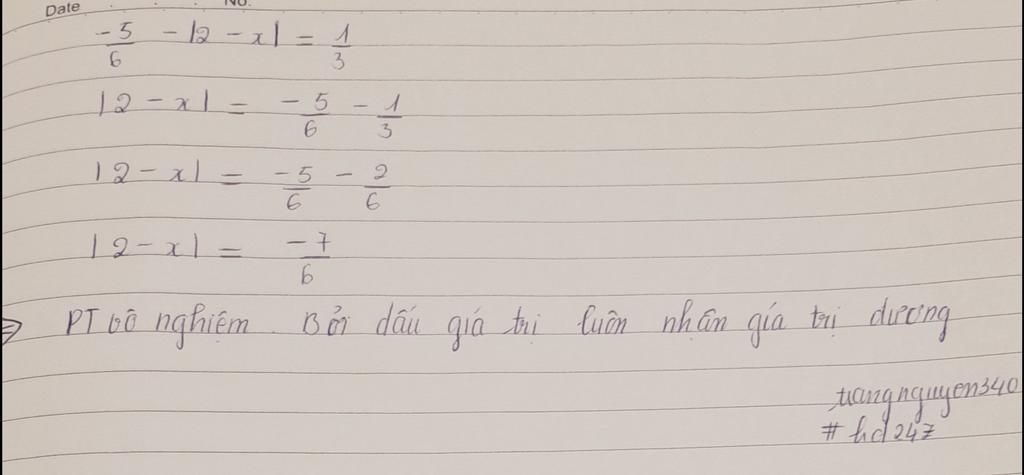 Date No.
-5/6 - |2 - x| = 1/3
|2 - x| = -5/6 - 1/3
|2 - x| = -5/6 - 2/6
|2 - x| = -7/6
=> PT vô nghiệm. Bởi dấu giá trị luôn nhận giá trị dương
trangnguyen340
# hd247